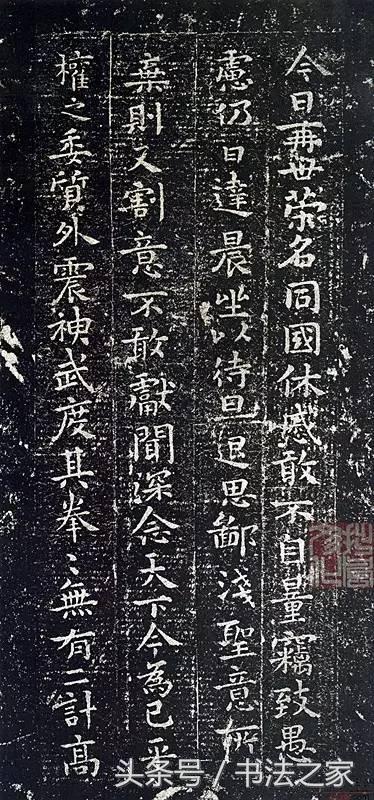 今日再世榮名同國休慼敢不自量竊致愚
慮仍日達晨坐以待旦退思鄙淺聖意所
棄則又割意不敢獻聞深念天下今為已平
權之委質外震神武度其拳〻無有二計高
头条号 / 书法之家